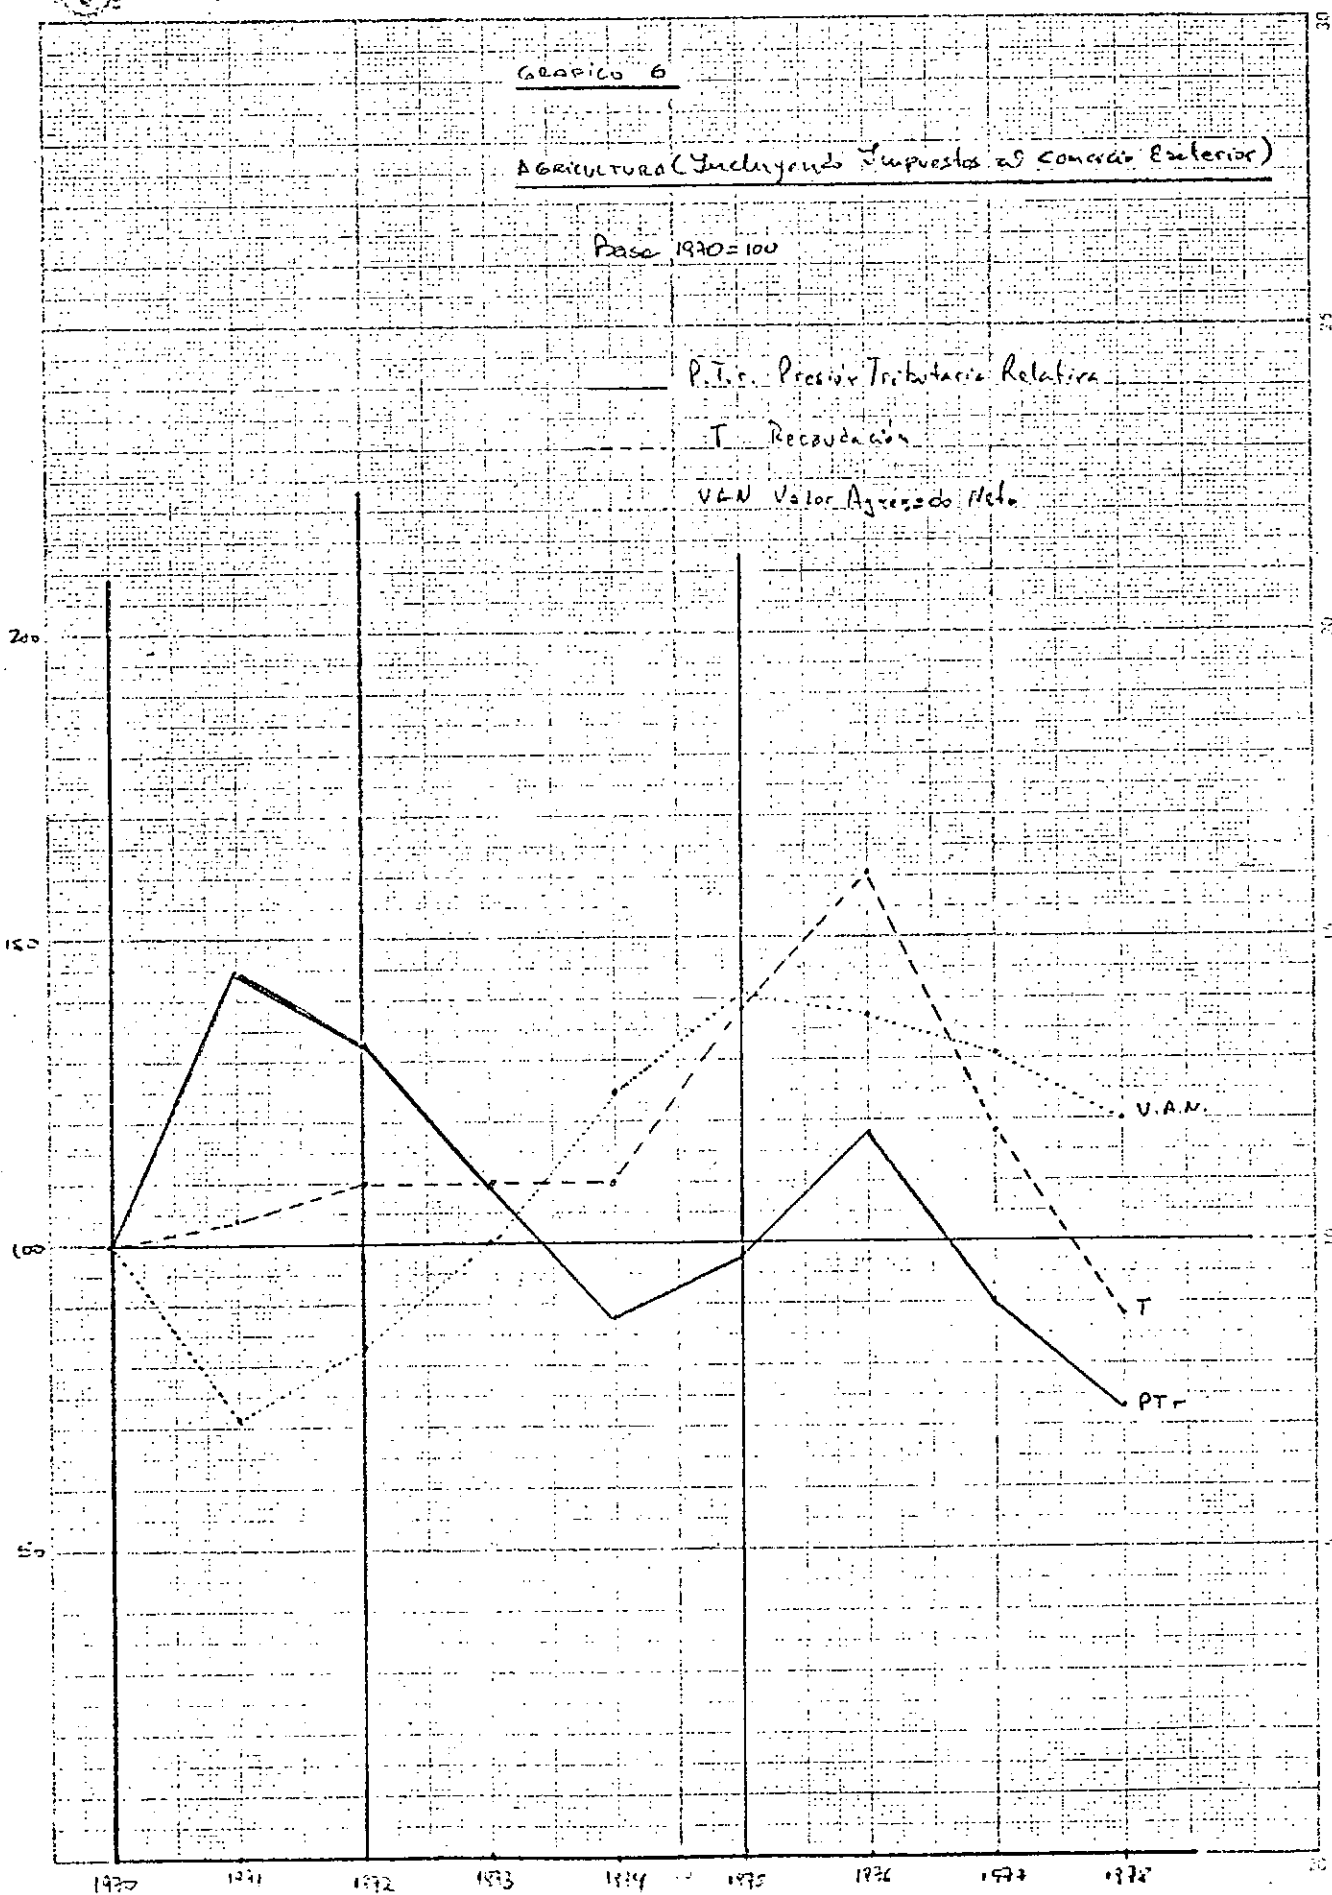 GRAFICO 6
AGRICULTURA (Incluyendo Impuestos al Comercio Exterior)
Base 1970=100
P.T.r. Presión Tributaria Relativa
T Recaudación
VAN Valor Agregado Neto
30
25
200
20
150
15
V.A.N.
100
10
T
PTr
50
5
1970 1971 1972 1973 1974 1975 1976 1977 1978